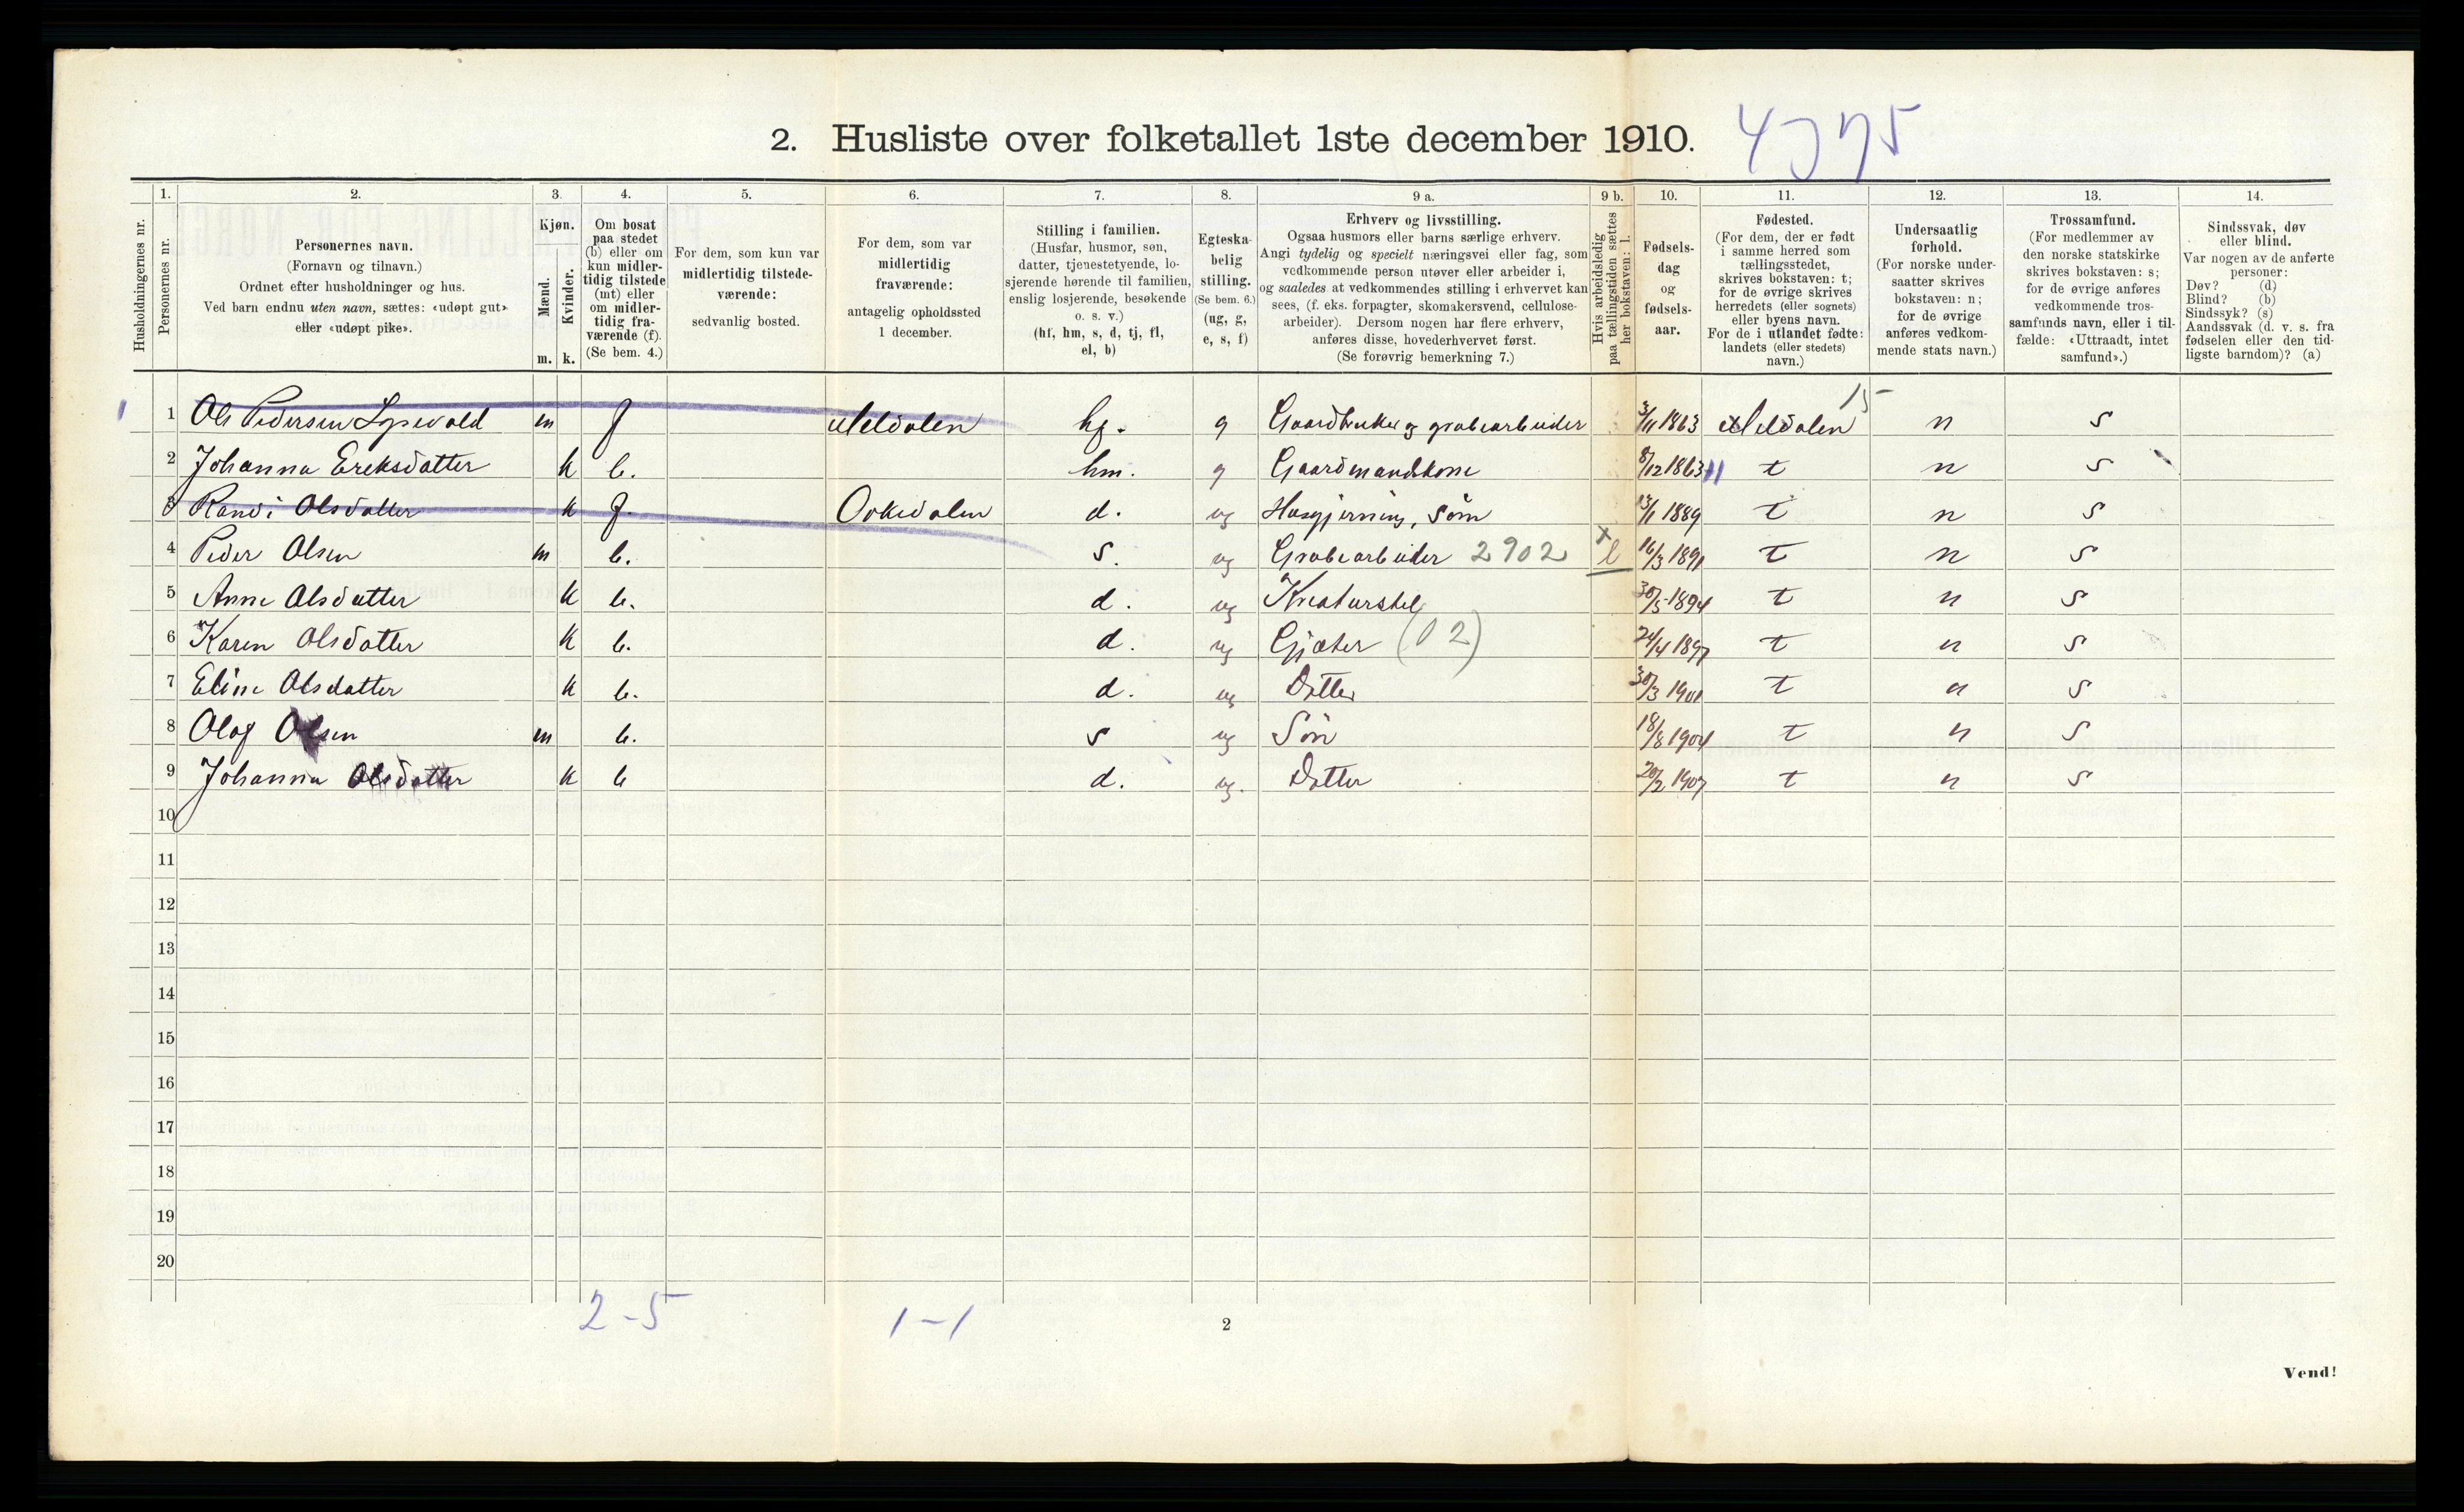 2. Husliste over folketallet 1ste december 1910.
1. 2. 3. 4. 5. 6. 7. 8. 9 a. 9 b. 10. 11. 12. 13. 14.
Husholdningernes nr.
Personernes nr.
Personernes navn.
(Fornavn og tilnavn.)
Ordnet efter husholdninger og hus.
Ved barn endnu uten navn, sættes: «udøpt gut»
eller «udøpt pike».
Kjøn.
Mænd.
Kvinder.
m. k.
Om bosat
paa stedet
(b) eller om
kun midler-
tidig tilstede
(mt) eller
om midler-
tidig fra-
værende (f).
(Se bem. 4.)
For dem, som kun var
midlertidig tilstede-
værende:
sedvanlig bosted.
For dem, som var
midlertidig
fraværende:
antagelig opholdssted
1 december.
Stilling i familien.
(Husfar, husmor, søn,
datter, tjenestetyende, lo-
sjerende hørende til familien,
enslig losjerende, besøkende
o. s. v.)
(hf, hm, s, d, tj, fl,
el, b)
Egteska-
belig
stilling.
(Se bem. 6.)
(ug, g,
e, s, f)
Erhverv og livsstilling.
Ogsaa husmors eller barns særlige erhverv.
Angi tydelig og specielt næringsvei eller fag, som
vedkommende person utøver eller arbeider i,
og saaledes at vedkommendes stilling i erhvervet kan
sees, (f. eks. forpagter, skomakersvend, cellulose-
arbeider). Dersom nogen har flere erhverv,
anføres disse, hovederhvervet først.
(Se forøvrig bemerkning 7.)
Hvis arbeidsledig
paa tællingstiden sættes
her bokstaven: l.
Fødsels-
dag
og
fødsels-
aar.
Fødested.
(For dem, der er født
i samme herred som
tællingsstedet,
skrives bokstaven: t;
for de øvrige skrives
herredets (eller sognets)
eller byens navn.
For de i utlandet fødte:
landets (eller stedets)
navn.)
Undersaatlig
forhold.
(For norske under-
saatter skrives
bokstaven: n;
for de øvrige
anføres vedkom-
mende stats navn.)
Trossamfund.
(For medlemmer av
den norske statskirke
skrives bokstaven: s;
for de øvrige anføres
vedkommende tros-
samfunds navn, eller i til-
fælde: «Uttraadt, intet
samfund».)
Sindssvak, døv
eller blind.
Var nogen av de anførte
personer:
Døv? (d)
Blind? (b)
Sindssyk? (s)
Aandssvak (d. v. s. fra
fødselen eller den tid-
ligste barndom)? (a)
15
1 1 Ole Pedersen m f Meldalen hf. g Gaardbruker og grubearbeider 3/11 1863 Meldalen n s
2 Johanna Ereksdatter k b. hm. g Gaardmandskone 8/12 1863 t n s
3 Randi Olsdatter k f Orkedalen d. ug Husgjerning, Søm 13/11 1889 t n s
4 Peder Olsen m b. s. ug Grubearbeider 2902 x l 16/3 1891 t n s
5 Anne Olsdatter k b. d. ug Kreaturstel 30/5 1894 t n s
6 Karen Olsdatter k b. d. ug Gjæter (02) 24/4 1897 t n s
7 Eline Olsdatter k b. d. ug Datter 30/3 1901 t n s
8 Olaf Olsen m b. s ug Søn 18/8 1904 t n s
9 Johanna Olsdatter k b d. ug. Datter 20/2 1907 t n s
10
11
12
13
14
15
16
17
18
19
20
2-5 1-1
2
Vend!